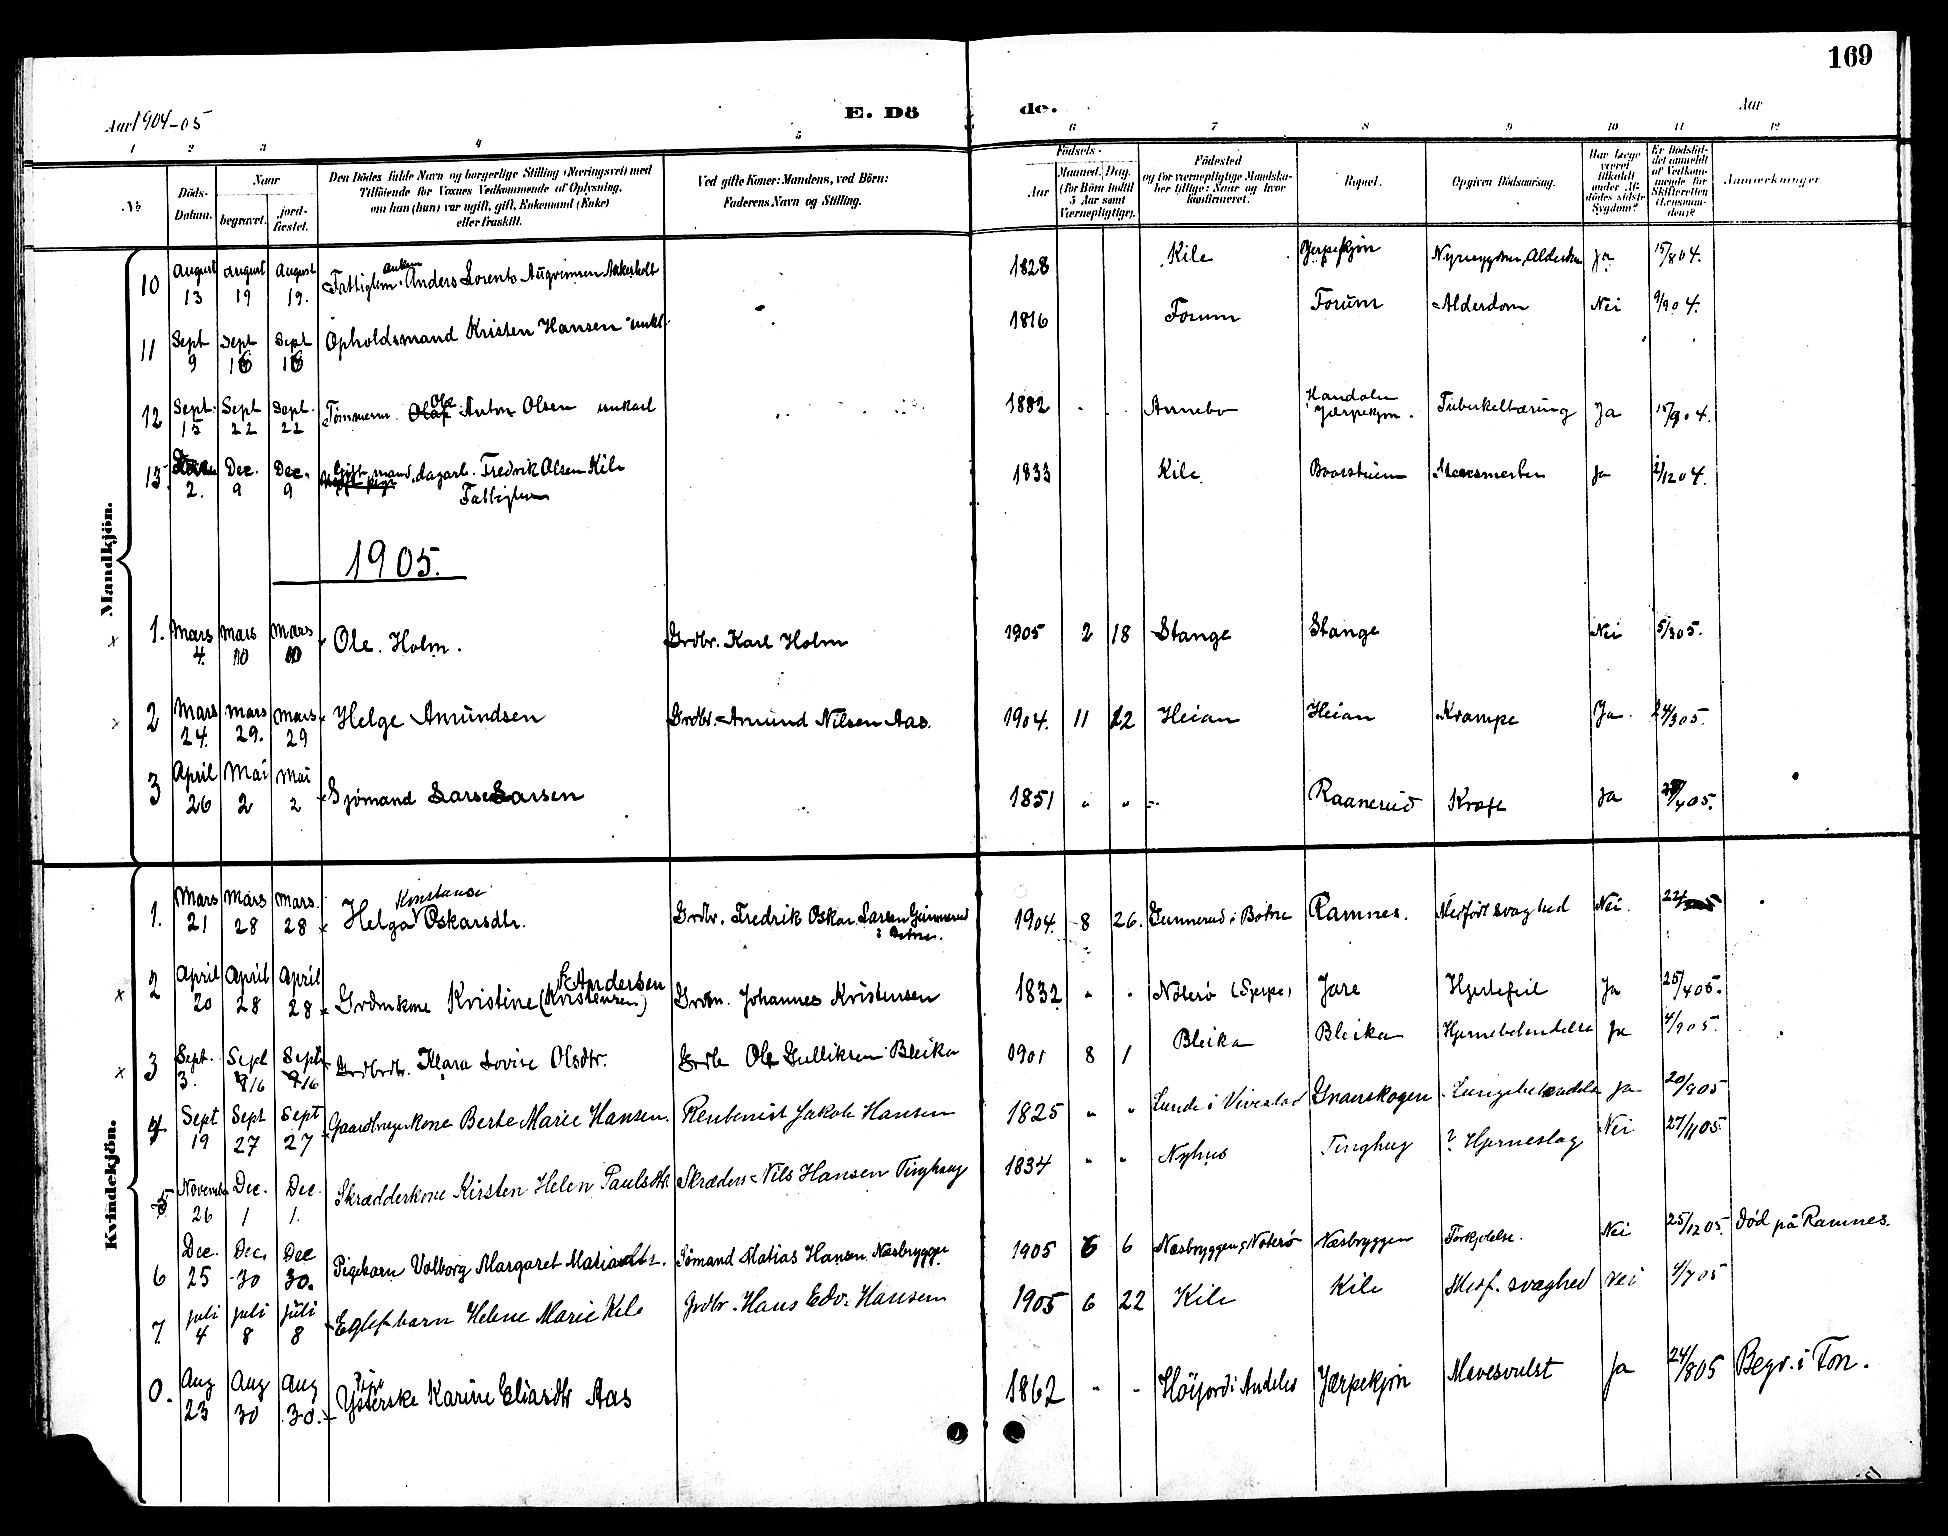 169
Aar 1904-05 E. Dö de. Aar
1 2 3 4 5 6 7 8 9 10 11 12
№ Döds-Datum. Naar begravet. jord-fæstet. Den Dödes fulde Navn og borgerlige Stilling (Næringsvei) med Tilföiende for Voxnes Vedkommende af Oplysning, om han (hun) var ugift, gift, Enkemand (Enke) eller fraskilt. Ved gifte Koner: Mandens, ved Börn: Faderens Navn og Stilling. Födsels- Aar Maaned. Dag. (for Börn indtil 5 Aar samt Værnepligtige). Födested og for værnepligtige Mandska-ber tillige: Naar og hvor konfirmeret. Bopæl. Opgiven Dödsaarsag. Har Læge været tilkaldt under Af-dödes sidste Sygdom? Er Dödsfal-det anmeldt af Vedkom-mende for Skifteretten (Lensman-den)? Anmærkninger
Mandkjön.
10 August 13 August 19 August 19. Fattiglem Anders Lorents Aakerholt 1828 Kile Jerpekjøn Ja 15/8 04.
11 Sept 9 Sept 16 Sept 16 Opholdsmand Kristen Hansen 1816 Forum Forum Alderdom Nei 9/9 04.
12 Sept. 15 Sept 22 Sept. 22 Tømmerm. Olaf Ole Anton Olsen unkarl 1882 Annebo Jærpekjøn. Tuberkelbæring Ja 15/9 04.
13. 2. Dec. 9 Dec. 9 Gift mand, dagarb. Fredrik Olsen Kile 1833 Kile Ja 2/12 04.
Fattiglem
1905.
1. Mars 4. Mars 10 Mars 10 Ole Holm. Grdbr. Karl Holm 1905 2 18 Stange Stange Nei 5/3 05.
2 Mars 24. Mars 29. Mars 29 Helge Amundsen Grdbr. Amund Nilsen Aas. 1904. 11 22 Heian Heian Krampe Ja. 24/3 05.
3 April 26 Mai 2 Mai 2 Sjømand Lars Larsen 1851 " " Raanerud Kræft Ja /4 05.
Kvindekjön.
1. Mars 21 Mars 28 Mars. 28 Helga Konstanse Oskarsdtr. Grdbr. Fredrik Oskar Larsen Gunnerud i Botne. 1904. 8 26. Gunnerud i Botne Ramnes. Medfødt svaghed Nei.
2 April 20 April 28 April 28 Grdmkone Kristine (Kristensen) Andersen Grdm. Johannes Kristensen 1832 " " Nøterø Jare Hjertefeil Ja 25/4 05.
3 Sept. 3. Sept 16 Sept 16 Grdbrdtr. Klara Lovise Olsdtr. Grdbr Ole Gulliksen Bleika 1901 8 1 Bleika Bleika Hjernebetændelse Ja 4/9 05.
4 Sept 19 Sept 27 Sept 27 Gaardbrugerkone Berte Marie Hansen. Rentenist Jakob Hansen 1825 " " Lunde i Vivestad Graaerskogen Lungebetændelse Ja 20/9 05
5 November 26 Dec. 1 Dec. 1. Skrædderkone Kirsten Helen Paulsdtr Skræder Nils Hansen Tinghaug 1834 " " Nyhus Tinghug ? Hjerneslag Nei 27/11 05.
6 Dec. 25 Dec. 30 Dec 30. Pigebarn Valborg Margaret Matiasdtr. Sømand Matias Hansen Næsbryggen 1905 6 6 Næsbryggen, Nøterø Næsbryggen Forkjølelse. Nei 25/12 05. Død på Ramnes.
7. juli 4 juli 8 juli 8 Egtef. barn Helene Marie Kile Grdbr. Hans Edv. Hansen 1905 6 22 Kile Kile Medf. svaghed Nei 4/7 05
0. Aug 23 Aug 30 Aug 30. Pige Karine Eliasdtr Aas 1862 " " Høijord i Andebu Jærpekjøn Mavesvulst Ja 24/8 05 Begr. i Fon.